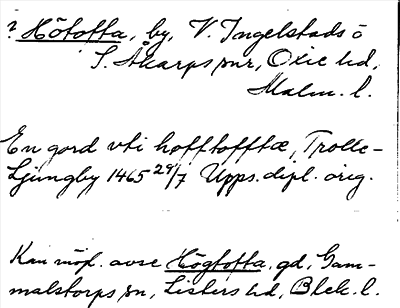 ? Hötofta, by, V. Ingelstads o
S. Åkarps snr, Oxie hd,
Malm. l.
En gord vti hofftofftæ, Trolle-
Ljungby 1465 29/7 Upps. dipl. orig.
Kan möjl. avse Högtofta, gd, Gam-
malstorps sn, Listers hd, Blek. l.